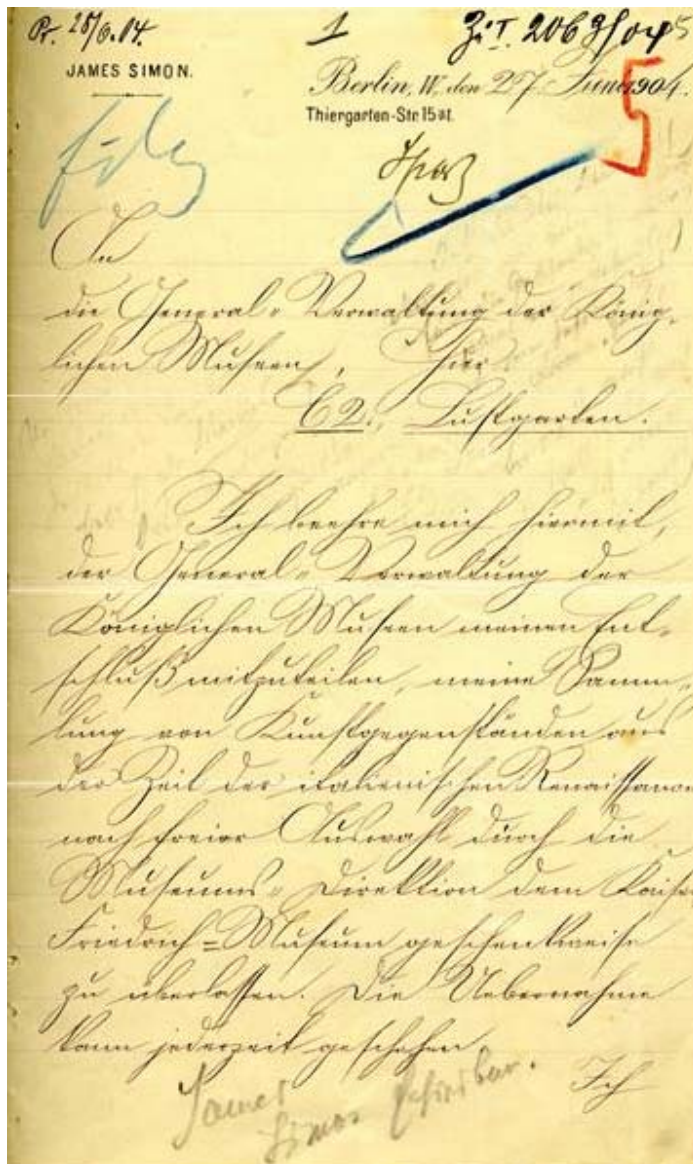 Pr. 28/6.04.
1
JAMES SIMON.
Berlin, W. den 27 Juni 1904.
Thiergarten-Str 15 a I.
5
An
die General-Verwaltung der König-
lichen Museen, Hier
C2., Lustgarten.
Ich beehre mich hiermit,
der General-Verwaltung der
Königlichen Museen meinen Ent-
schluß mitzuteilen, meine Samm-
lung von Kunstgegenständen aus
der Zeit der italienischen Renaissance
nach freier Auswahl durch die
Museums-Direktion dem Kaiser
Friedrich-Museum geschenkweise
zu überlassen. Die Uebernahme
kann jederzeit geschehen.
Ich
James
Simon